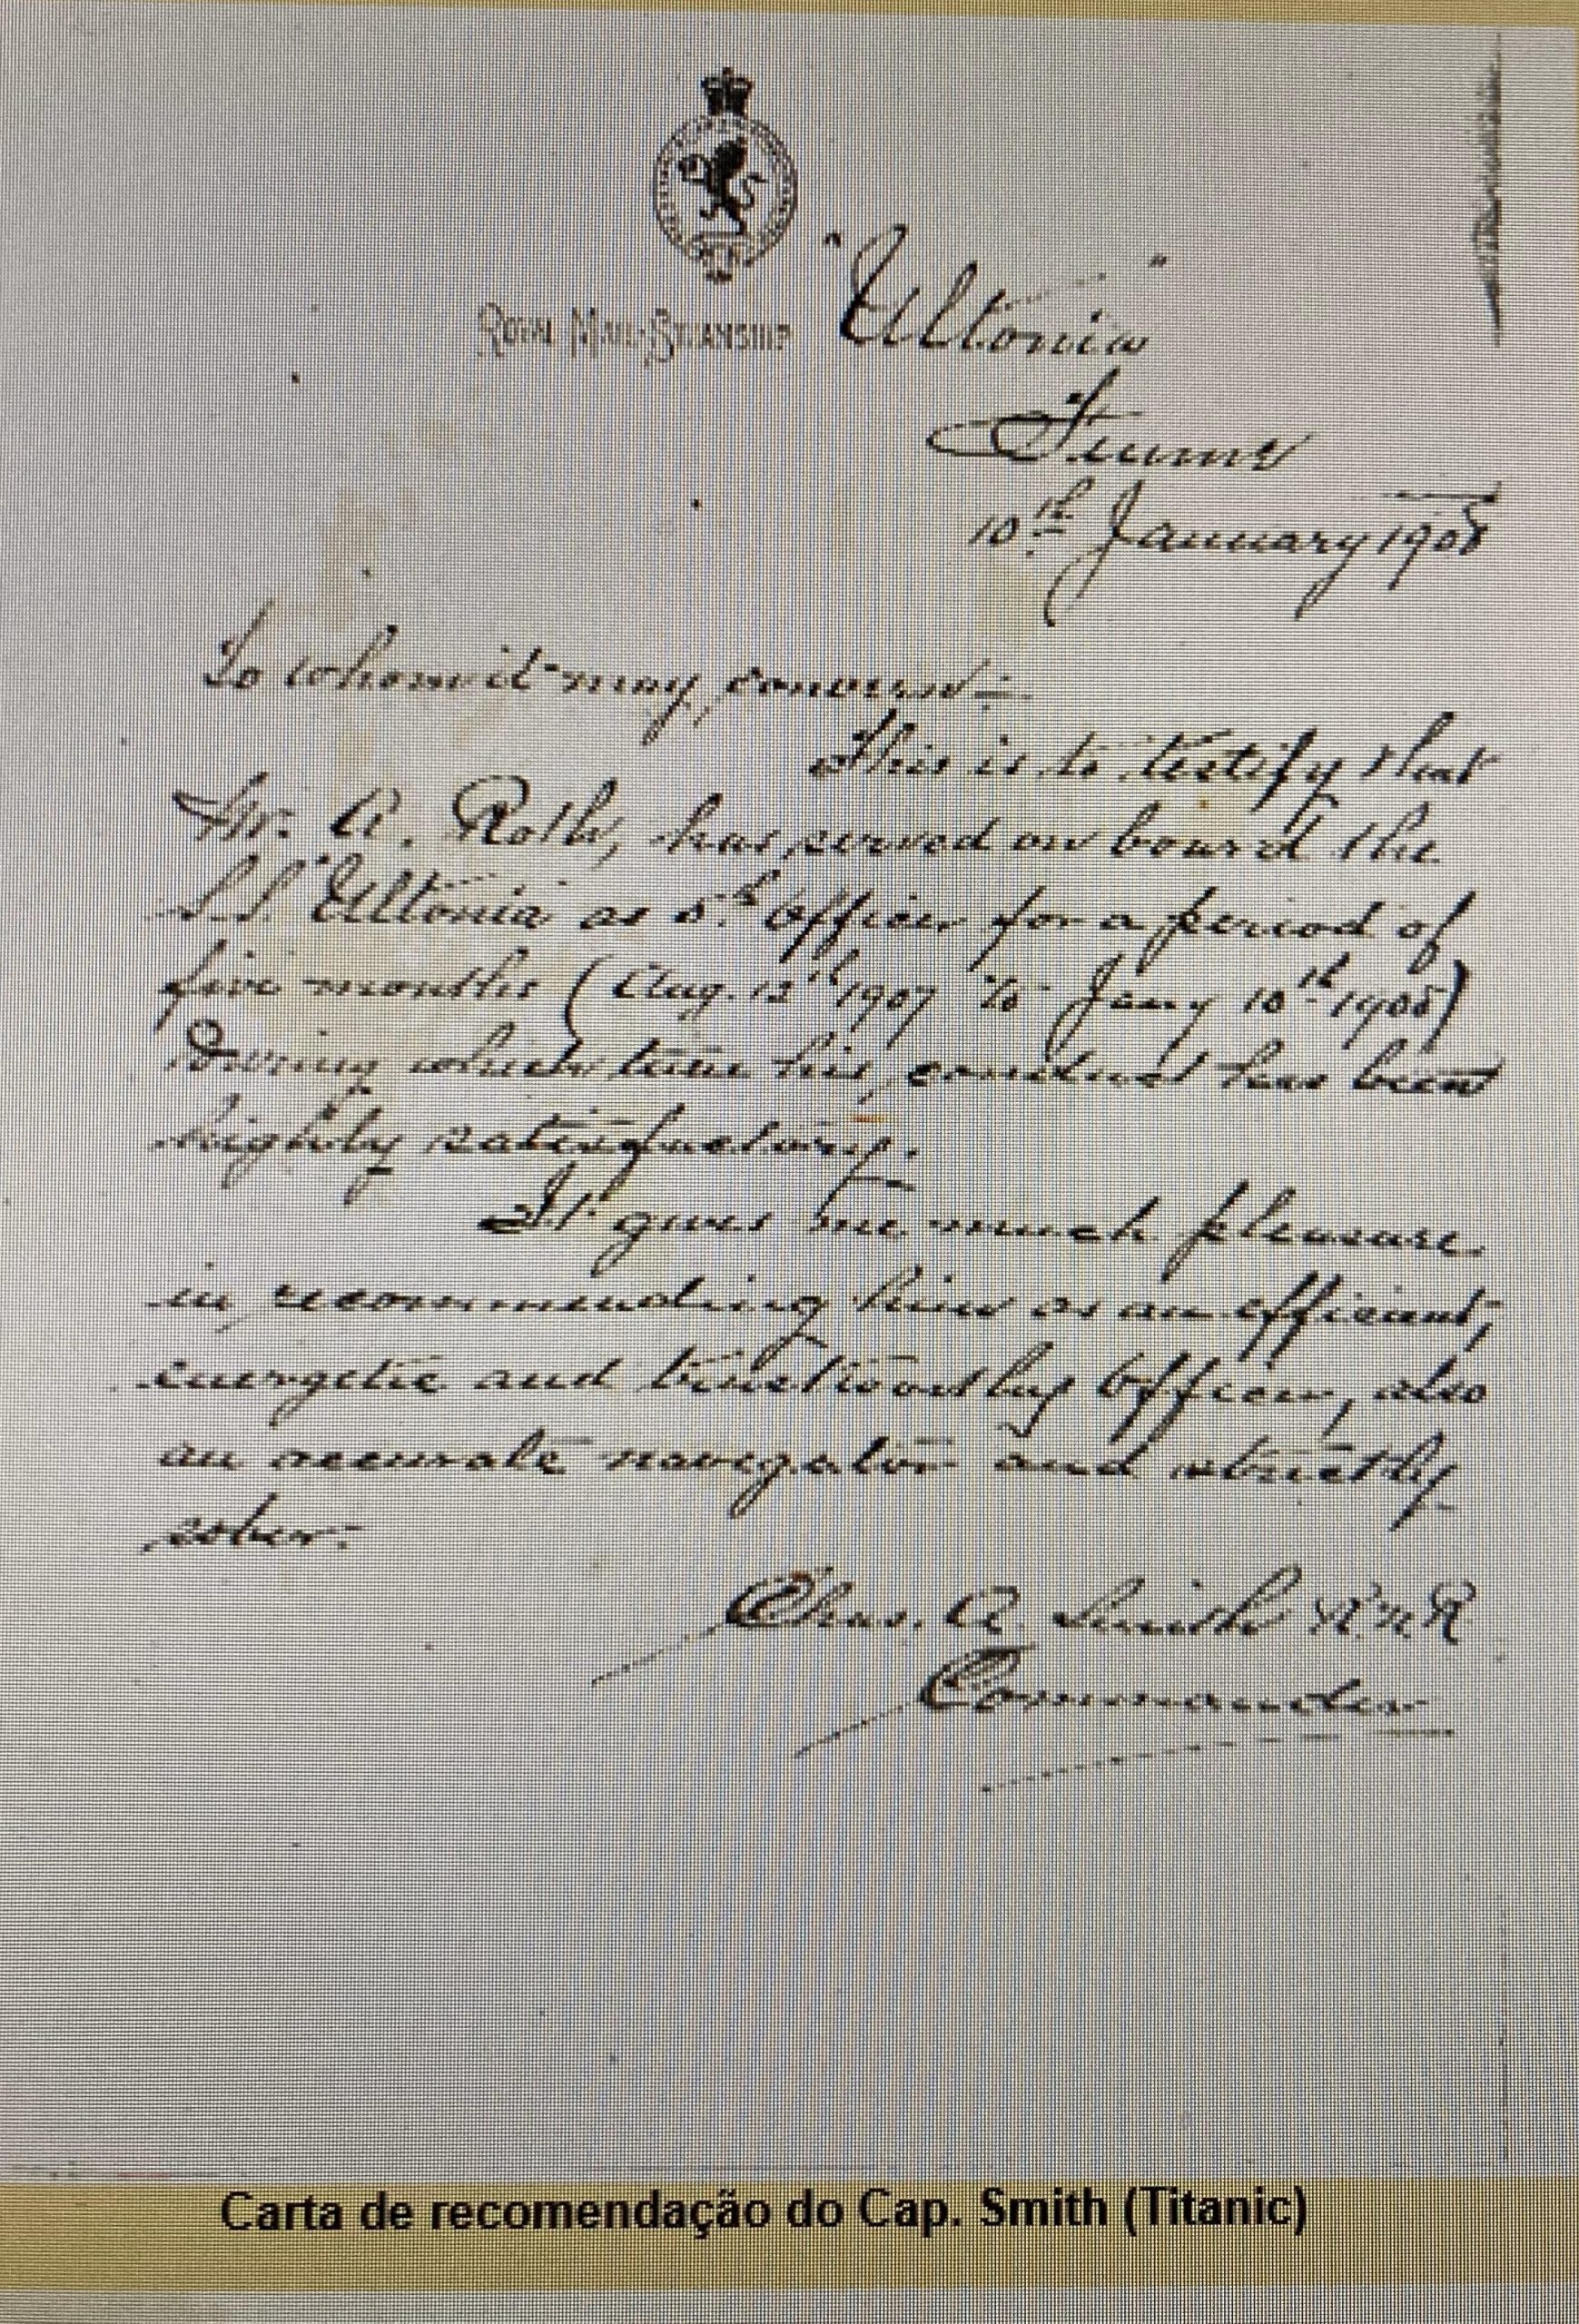 ROYAL MAIL STEAMSHIP "Ultonia"
Fiume
10th January 1908
To whom it may concern:-
This is to testify that
Mr. A. Roth, has served on board the
S.S. "Ultonia as 5th Officer for a period of
five months (Aug. 12th 1907 to Jany 10th 1908)
During which time his conduct has been
highly satisfactory.
It gives me much pleasure
in recommending him as an efficient,
energetic and trustworthy Officer, also
an accurate navigator and strictly
sober.
Chas. A. Smith RNR
Commander
Carta de recomendação do Cap. Smith (Titanic)